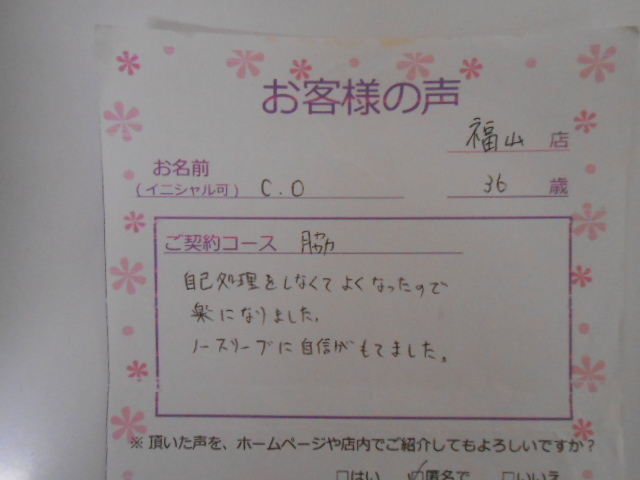 お客様の声
福山 店
お名前
(イニシャル可) C.O 36 歳
ご契約コース 脇
自己処理をしなくてよくなったので
楽になりました。
ノースリーブに自信がもてました。
※頂いた声を、ホームページや店内でご紹介してもよろしいですか?
□はい ☑匿名で □いいえ